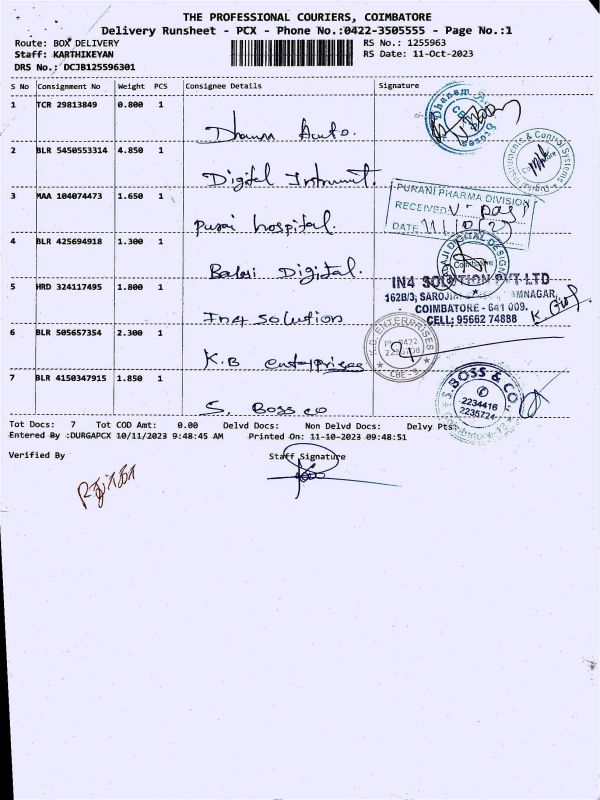 THE PROFESSIONAL COURIERS, COIMBATORE
Delivery Runsheet - PCX - Phone No.:0422-3505555 - Page No.:1
Route: BOX DELIVERY
RS No.: 1255963
Staff: KARTHIKEYAN
RS Date: 11-Oct-2023
DRS No.: DCJB125596301
S No Consignment No Weight PCS Consignee Details Signature
1 TCR 29813849 0.800 1
Auto.
2 BLR 5450553314 4.850 1
Digital
Instruments & Control Systems
3 MAA 104074473 1.650 1
hospital.
PURANI PHARMA DIVISION
RECEIVED
DATE 11/10/23
4 BLR 425694918 1.300 1
Balaji Digital.
BALAJI DIGITAL DESIGNS
Coimbatore
5 HRD 324117495 1.800 1
In4 solution
IN4 SOLUTION PVT LTD
162B/3, COIMBATORE - 641 009.
CELL: 95662 74888
6 BLR 505657354 2.300 1
K.B enterprises
K.B. ENTERPRISES
CBE - 9
7 BLR 4150347915 1.850 1
S. Boss co
S. BOSS & CO.
2234416
2235724
Tot Docs: 7 Tot COD Amt: 0.00 Delvd Docs: Non Delvd Docs: Delvy Pts:
Entered By :DURGAPCX 10/11/2023 9:48:45 AM Printed On: 11-10-2023 09:48:51
Verified By Staff Signature